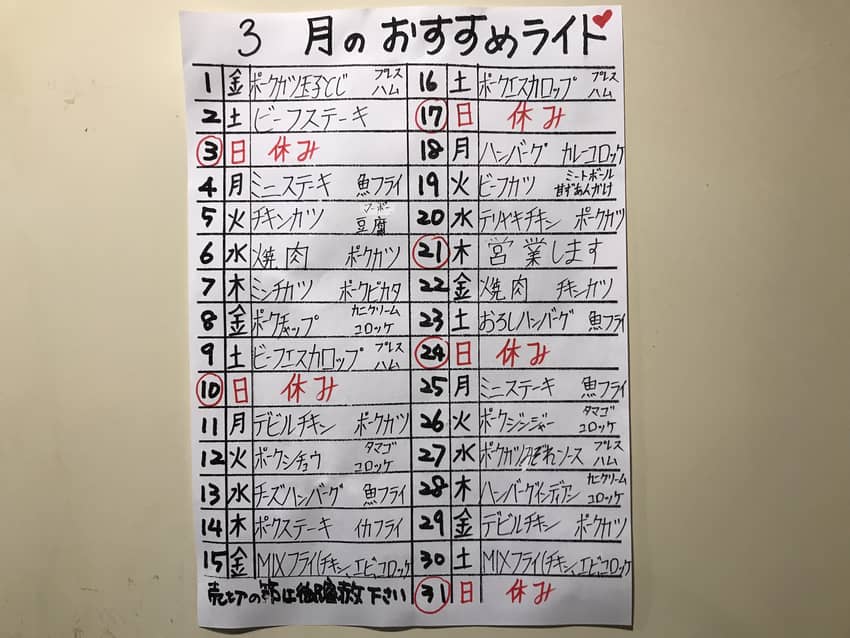 3 月のおすすめライト
1 金 ポークカツ玉子とじ プレスハム
2 土 ビーフステーキ
3 日 休み
4 月 ミニステーキ 魚フライ
5 火 チキンカツ マーボー豆腐
6 水 焼肉 ポークカツ
7 木 ミンチカツ ポークピカタ
8 金 ポークチャップ カニクリームコロッケ
9 土 ビーフエスカロップ プレスハム
10 日 休み
11 月 デビルチキン ポークカツ
12 火 ポークシチュウ タマゴコロッケ
13 水 チーズハンバーグ 魚フライ
14 木 ポークステーキ イカフライ
15 金 MIXフライ(チキン、エビ、コロッケ
売切の節は御容赦下さい
16 土 ポークエスカロップ プレスハム
17 日 休み
18 月 ハンバーグ カレーコロッケ
19 火 ビーフカツ ミートボール甘ずあんかけ
20 水 テリヤキチキン ポークカツ
21 木 営業します
22 金 焼肉 チキンカツ
23 土 おろしハンバーグ 魚フライ
24 日 休み
25 月 ミニステーキ 魚フライ
26 火 ポークジンジャー タマゴコロッケ
27 水 ポークカツみぞれソース プレスハム
28 木 ハンバーグインディアン カニクリームコロッケ
29 金 デビルチキン ポークカツ
30 土 MIXフライ(チキン、エビ、コロッケ
31 日 休み